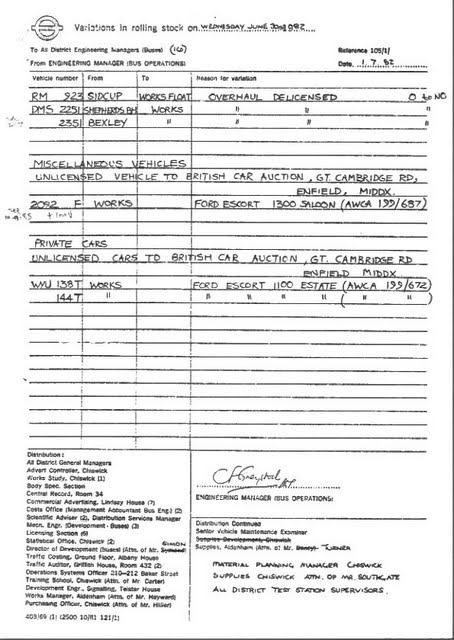 Variations in rolling stock on WEDNESDAY JUNE 30th 1982
To All District Engineering Managers (Buses) (16)
Reference 105/1/
From ENGINEERING MANAGER (BUS OPERATIONS)
Date. 1.7.82
Vehicle number From To Reason for variation
RM 923 SIDCUP WORKS FLOAT OVERHAUL DELICENSED O to NO
DMS 2251 SHEPHERDS BH WORKS " " "
2351 BEXLEY " " " "
MISCELLANEOUS VEHICLES
UNLICENSED VEHICLE TO BRITISH CAR AUCTION, GT. CAMBRIDGE RD,
ENFIELD, MIDDX.
2092 F WORKS FORD ESCORT 1300 SALOON (AWCA 199/687)
PRIVATE CARS
UNLICENSED CARS TO BRITISH CAR AUCTION, GT. CAMBRIDGE RD
ENFIELD MIDDX.
WYU 138T WORKS FORD ESCORT 1100 ESTATE (AWCA 199/672)
144T " " " " " ( " " )
Distribution:
All District General Managers
Advert Controller, Chiswick
Works Study, Chiswick (1)
Body Spec. Section
Central Record, Room 34
Commercial Advertising, Lindsey House (7)
Costs Office (Management Accountant Bus Eng.) (2)
Scientific Adviser (2), Distribution Services Manager
Mech. Engr. (Development - Buses) (3)
Licensing Section (6)
Statistical Office, Chiswick (2)
SIMON
Director of Development (Buses) (Attn. of Mr.
Traffic Costing, Ground Floor, Albany House
Traffic Auditor, Griffith House, Room 432 (2)
Operations Systems Officer 210-212 Baker Street
Training School, Chiswick (Attn. of Mr. Carter)
Development Engr., Signalling, Telstar House
Works Manager, Aldenham (Attn. of Mr. Hayward)
Purchasing Officer, Chiswick (Attn. of Mr. Hillier)
403/69 (1) (2500 10/81 121/1)
ENGINEERING MANAGER (BUS OPERATIONS)
Distribution Continued
Senior Vehicle Maintenance Examiner
Supplies Development, Chiswick
Supplies, Aldenham (Attn. of Mr. TURNER
MATERIAL PLANNING MANAGER CHISWICK
SUPPLIES CHISWICK ATTN. OF MR. SOUTHGATE
ALL DISTRICT TEST STATION SUPERVISORS.